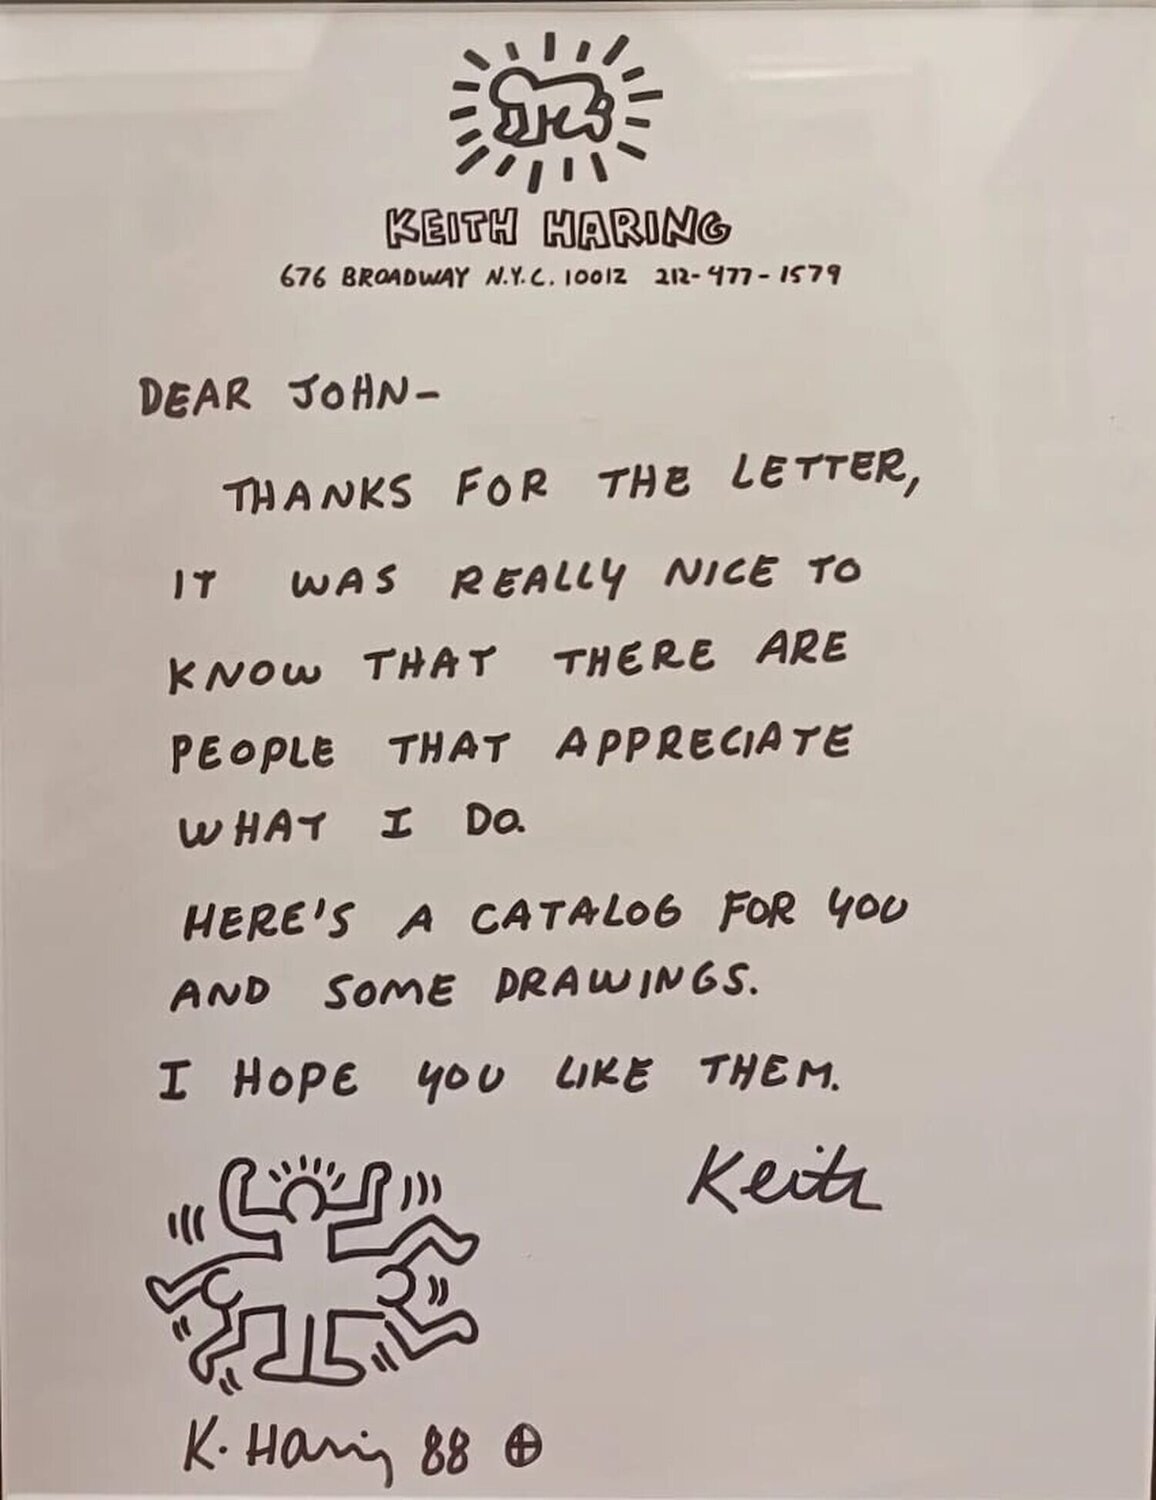 KEITH HARING
676 BROADWAY N.Y.C. 10012 212-477-1579
DEAR JOHN-
THANKS FOR THE LETTER,
IT WAS REALLY NICE TO
KNOW THAT THERE ARE
PEOPLE THAT APPRECIATE
WHAT I DO.
HERE'S A CATALOG FOR YOU
AND SOME DRAWINGS.
I HOPE YOU LIKE THEM.
Keith
K. Haring 88 ⊕